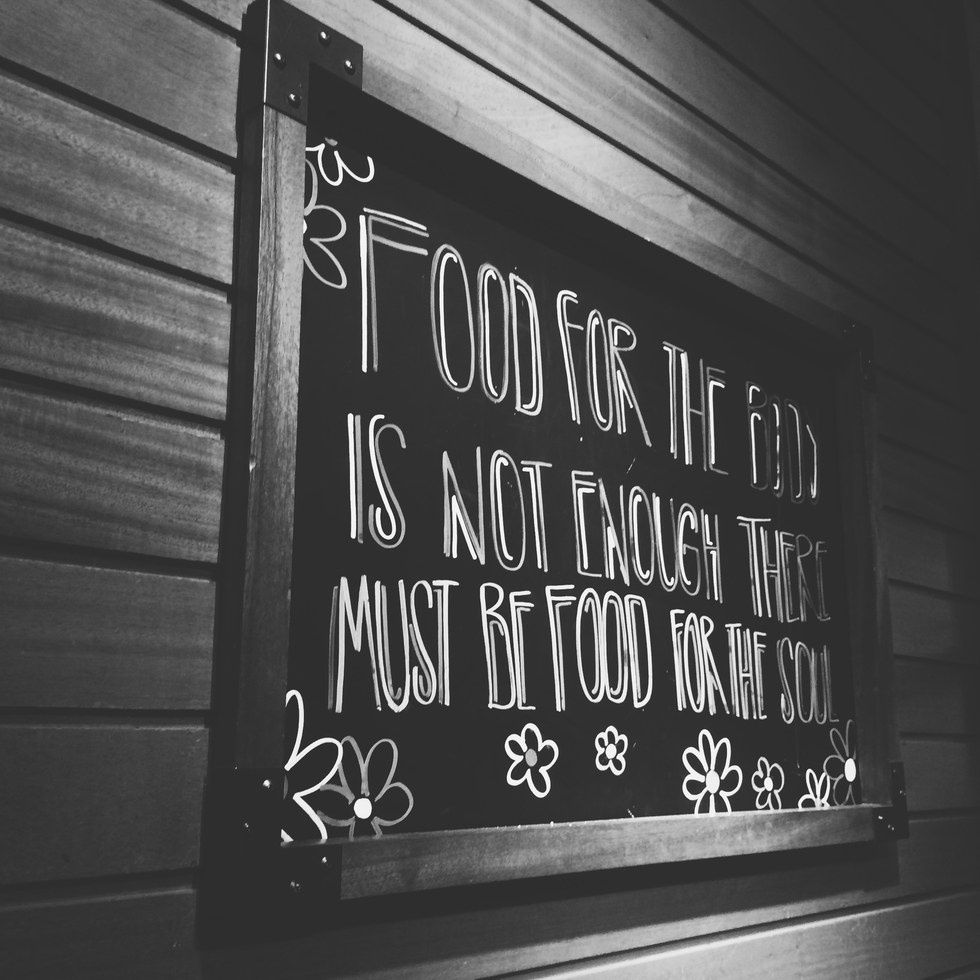 FOOD FOR THE BODY
IS NOT ENOUGH THERE
MUST BE FOOD FOR THE SOUL